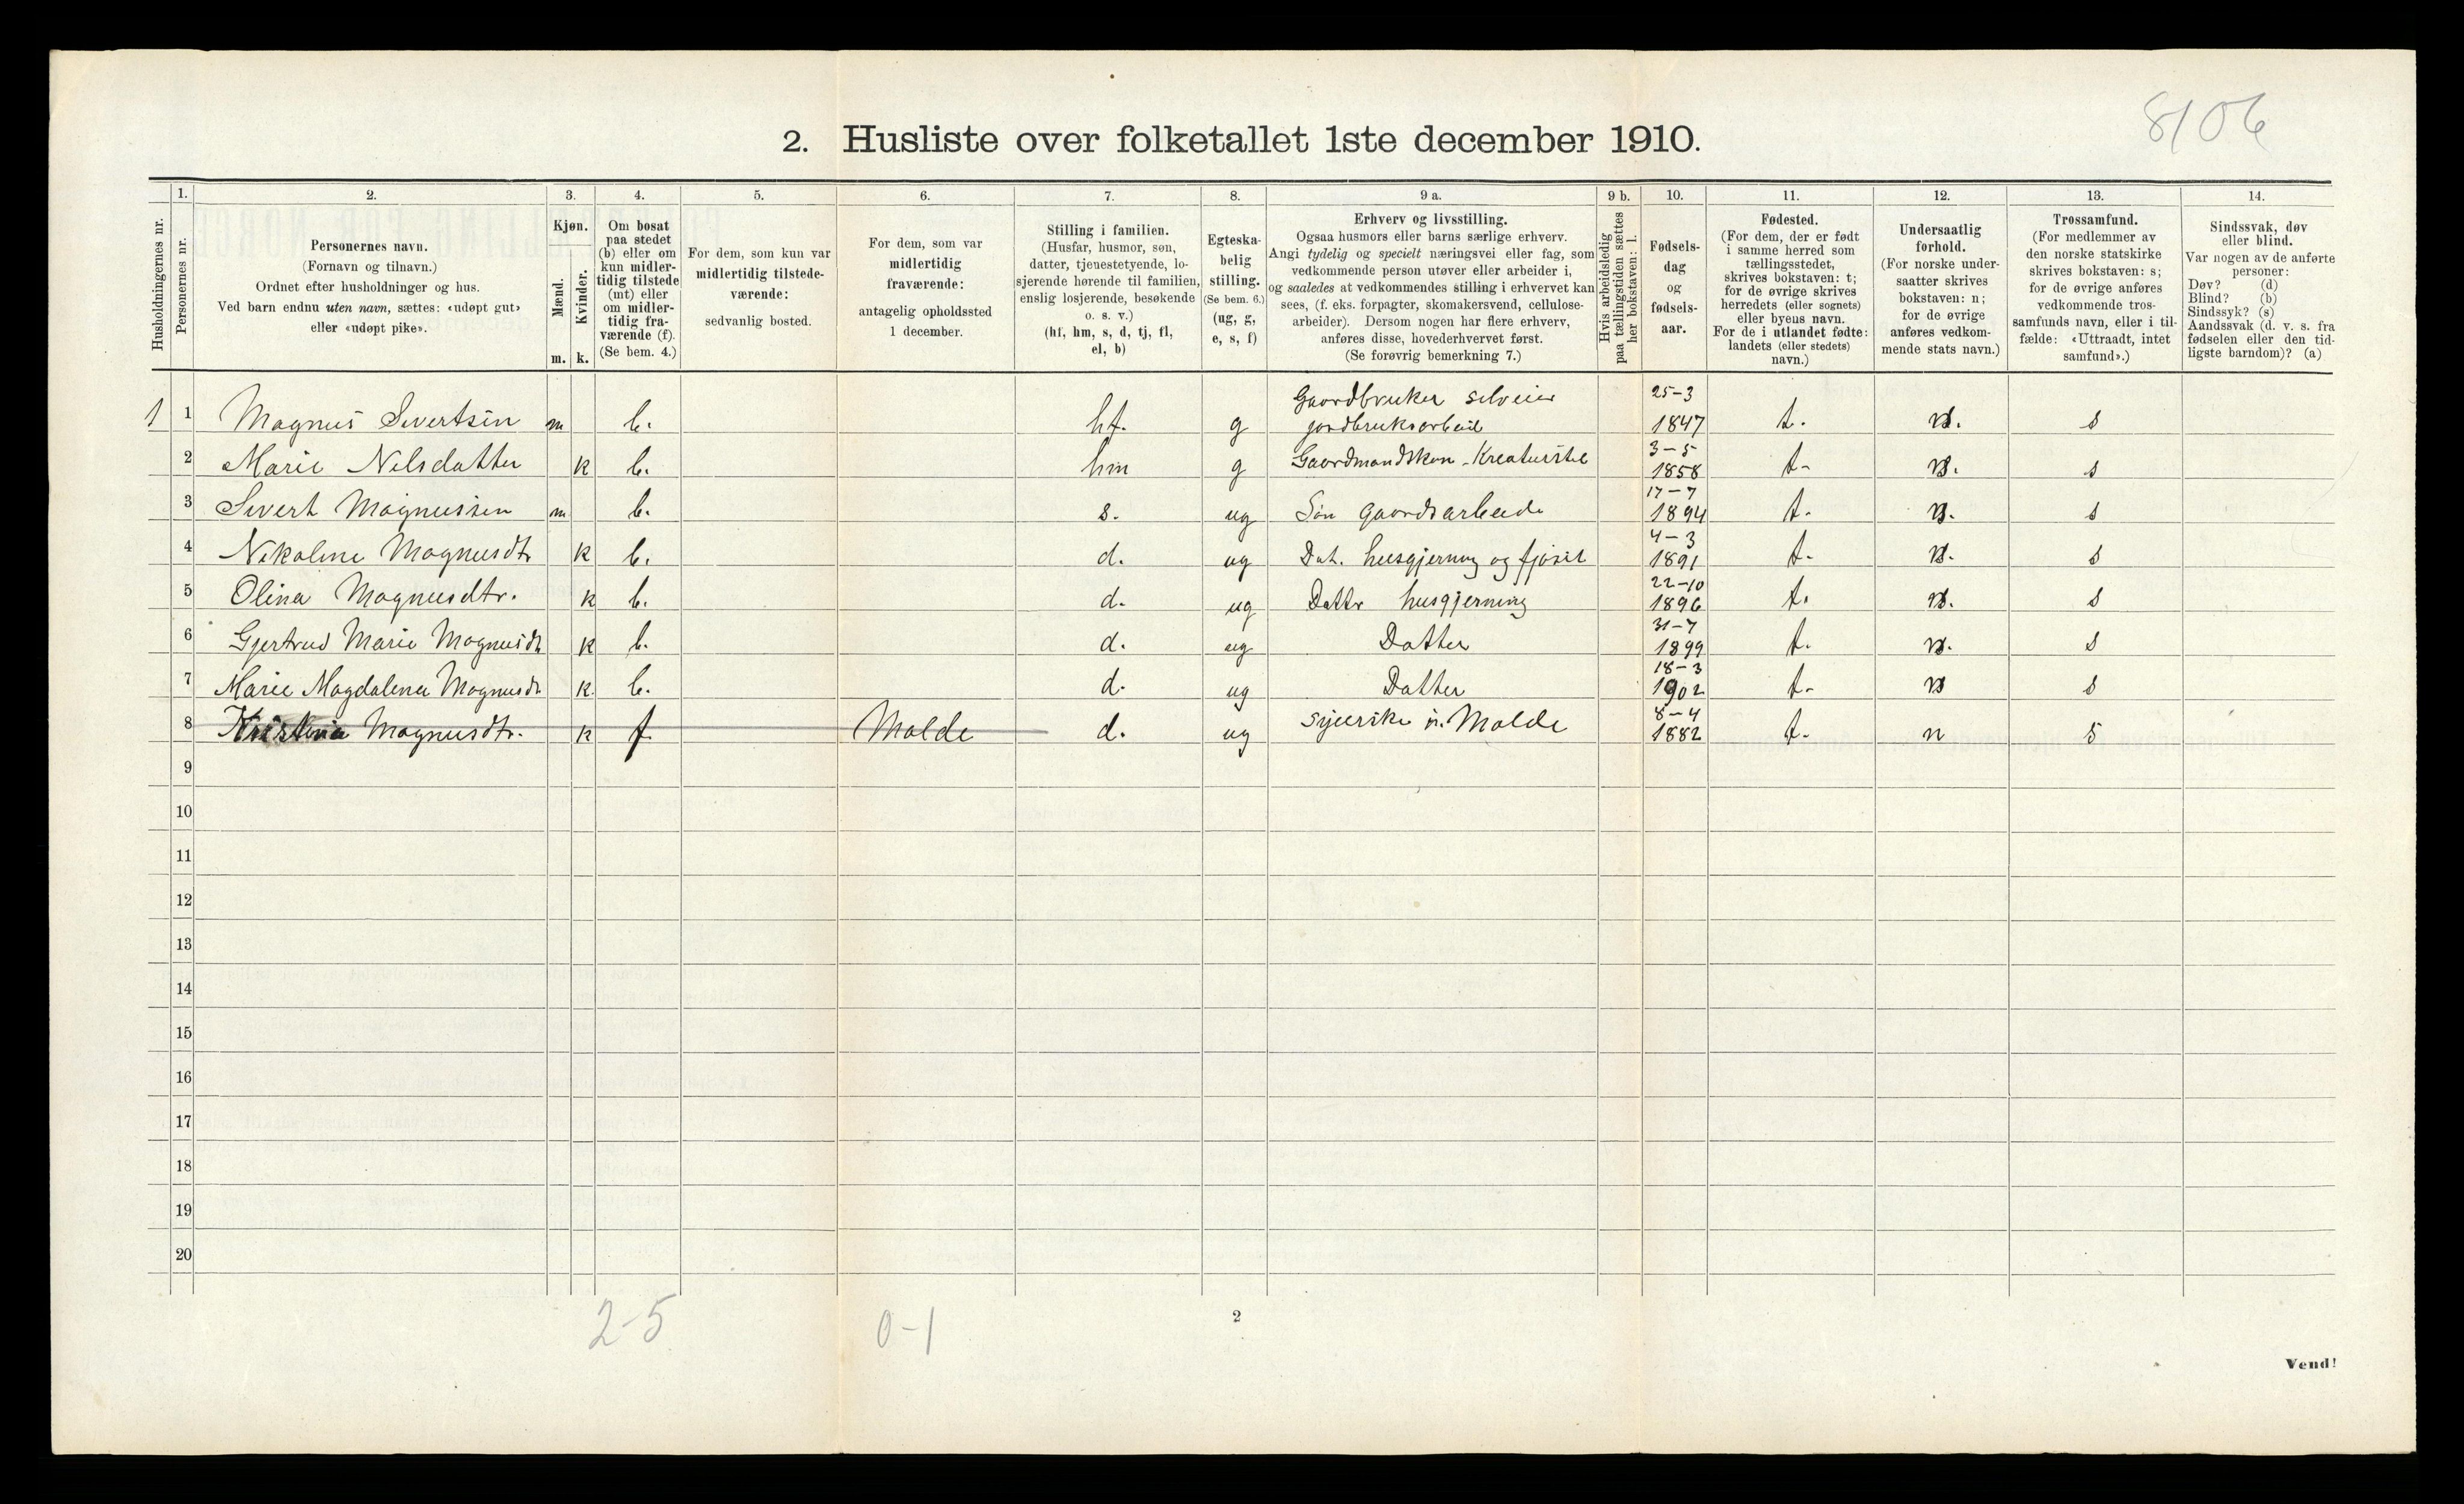 8106
2. Husliste over folketallet 1ste december 1910.
Husholdningernes nr.
1.
Personernes nr.
2.
Personernes navn.
(Fornavn og tilnavn.)
Ordnet efter husholdninger og hus.
Ved barn endnu uten navn, sættes: «udøpt gut»
eller «udøpt pike».
3.
Kjøn.
Mænd.
Kvinder.
m. k.
4.
Om bosat
paa stedet
(b) eller om
kun midler-
tidig tilstede
(mt) eller
om midler-
tidig fra-
værende (f).
(Se bem. 4.)
5.
For dem, som kun var
midlertidig tilstede-
værende:
sedvanlig bosted.
6.
For dem, som var
midlertidig
fraværende:
antagelig opholdssted
1 december.
7.
Stilling i familien.
(Husfar, husmor, søn,
datter, tjenestetyende, lo-
sjerende hørende til familien,
enslig losjerende, besøkende
o. s. v.)
(hf, hm, s, d, tj, fl,
el, b)
8.
Egteska-
belig
stilling.
(Se bem. 6.)
(ug, g,
e, s, f)
9 a.
Erhverv og livsstilling.
Ogsaa husmors eller barns særlige erhverv.
Angi tydelig og specielt næringsvei eller fag, som
vedkommende person utøver eller arbeider i,
og saaledes at vedkommendes stilling i erhvervet kan
sees, (f. eks. forpagter, skomakersvend, cellulose-
arbeider). Dersom nogen har flere erhverv,
anføres disse, hovederhvervet først.
(Se forøvrig bemerkning 7.)
9 b.
Hvis arbeidsledig
paa tællingstiden sættes
her bokstaven: l.
10.
Fødsels-
dag
og
fødsels-
aar.
11.
Fødested.
(For dem, der er født
i samme herred som
tællingsstedet,
skrives bokstaven: t;
for de øvrige skrives
herredets (eller sognets)
eller byens navn.
For de i utlandet fødte:
landets (eller stedets)
navn.)
12.
Undersaatlig
forhold.
(For norske under-
saatter skrives
bokstaven: n;
for de øvrige
anføres vedkom-
mende stats navn.)
13.
Trossamfund.
(For medlemmer av
den norske statskirke
skrives bokstaven: s;
for de øvrige anføres
vedkommende tros-
samfunds navn, eller i til-
fælde: «Uttraadt, intet
samfund».)
14.
Sindssvak, døv
eller blind.
Var nogen av de anførte
personer:
Døv? (d)
Blind? (b)
Sindssyk? (s)
Aandssvak (d. v. s. fra
fødselen eller den tid-
ligste barndom)? (a)
1 1 Magnus Sivertsen m b. hf. g Gaardbruker selveier jordbruksarbeid 25-3 1847 t. n. s
2 Marie Nilsdatter k b. hm g Gaardmandskon - Kreaturstel 3-5 1858 t- n. s
3 Sivert Magnussen m b. s. ug Søn gaardsarbeide 17-7 1894 t. n. s
4 Nikoline Magnusdtr k b. d. ug Dat. husgjerning og fjøset 4-3 1891 t- n. s
5 Olina Magnusdtr. k b. d. ug Dattr husgjerning 22-10 1896 t. n. s
6 Gjertrud Marie Magnusdt k b. d. ug Datter 31-7 1899 t. n. s
7 Marie Magdalena Magnusdt k. b. d. ug Datter 18-3 1902 t- n s
8 Kristina Magnusdtr. k f Molde d. ug syerske i Molde 8-4 1882 t- n s
9
10
11
12
13
14
15
16
17
18
19
20
2-5 0-1
2
Vend!